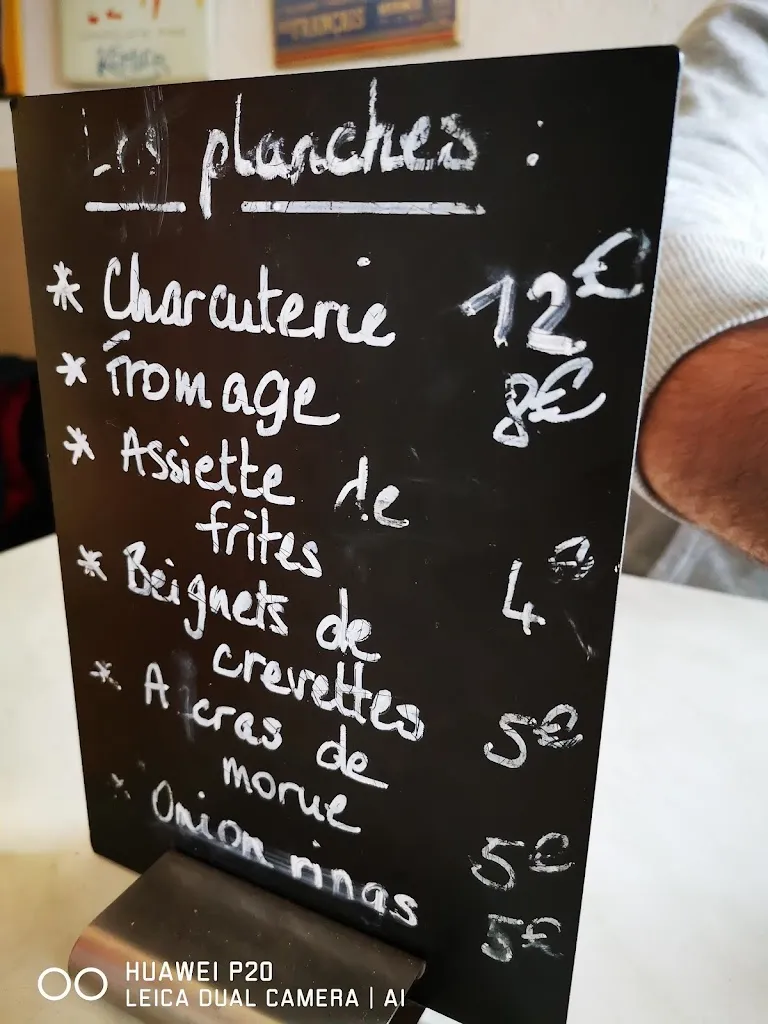 Les planches :
* Charcuterie 12€
* fromage 8€
* Assiette de
frites 4€
* Beignets de
crevettes 5€
* Acras de
morue 5€
* Onion rings 5€
HUAWEI P20
LEICA DUAL CAMERA | AI